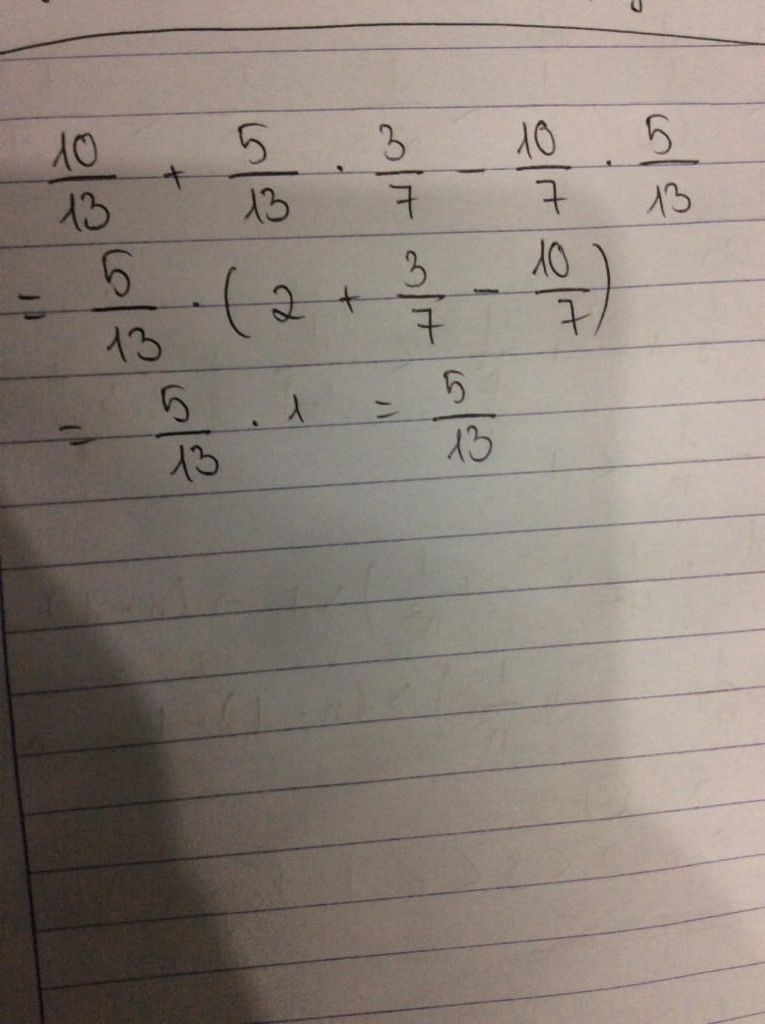 10/13 + 5/13 · 3/7 - 10/7 · 5/13
= 5/13 · (2 + 3/7 - 10/7)
= 5/13 · 1 = 5/13